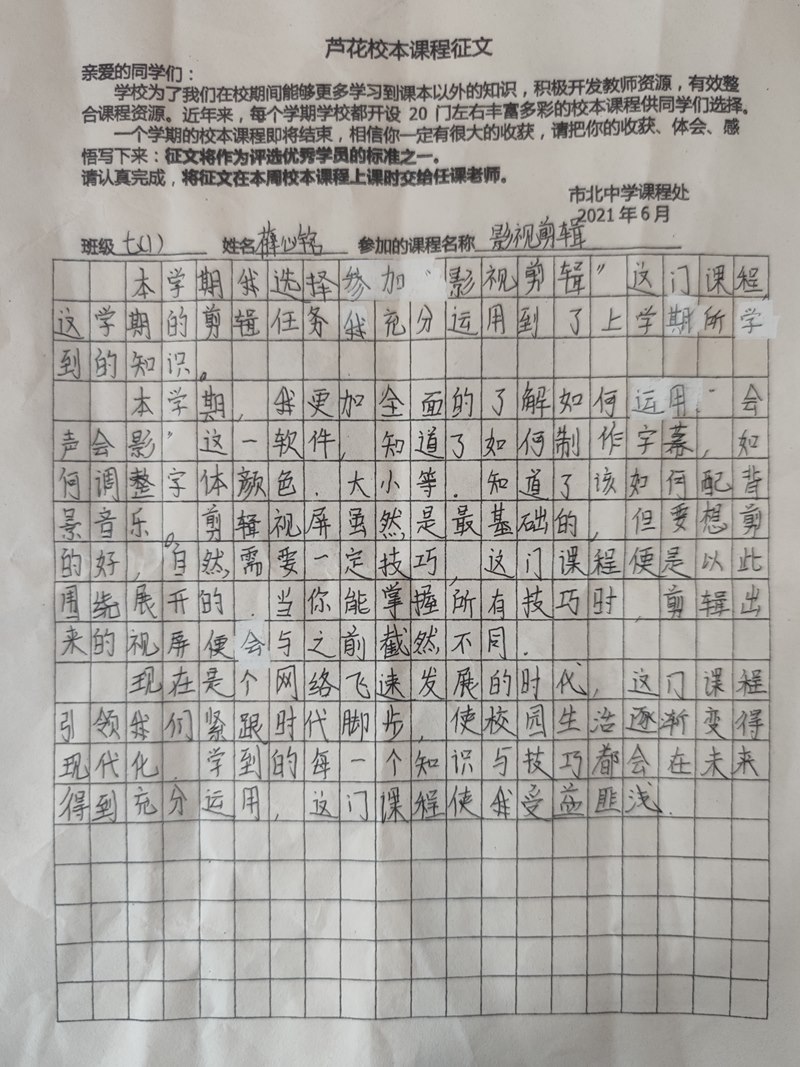 芦花校本课程征文
亲爱的同学们：
学校为了我们在校期间能够更多学习到课本以外的知识，积极开发教师资源，有效整
合课程资源。近年来，每个学期学校都开设 20 门左右丰富多彩的校本课程供同学们选择。
一个学期的校本课程即将结束，相信你一定有很大的收获，请把你的收获、体会、感
悟写下来：征文将作为评选优秀学员的标准之一。
请认真完成，将征文在本周校本课程上课时交给任课老师。
市北中学课程处
2021 年 6 月
班级 七(1) 姓名 薛心铭 参加的课程名称 影视剪辑
本学期我选择参加“影视剪辑”这门课程，
这学期的剪辑任务我充分运用到了上学期所学
到的知识。
本学期，我更加全面的了解如何运用“会
声会影”这一软件，知道了如何制作字幕，如
何调整字体颜色．大小等．知道了该如何配背
景音乐。剪辑视屏虽然是最基础的，但要想剪
的好，自然需要一定技巧，这门课程便是以此
围绕展开的．当你能掌握所有技巧时，剪辑出
来的视屏便会与之前截然不同．
现在是个网络飞速发展的时代，这门课程
引领我们紧跟时代脚步，使校园生活逐渐变得
现代化．学到的每一个知识与技巧都会在未来
得到充分运用，这门课程使我受益匪浅．